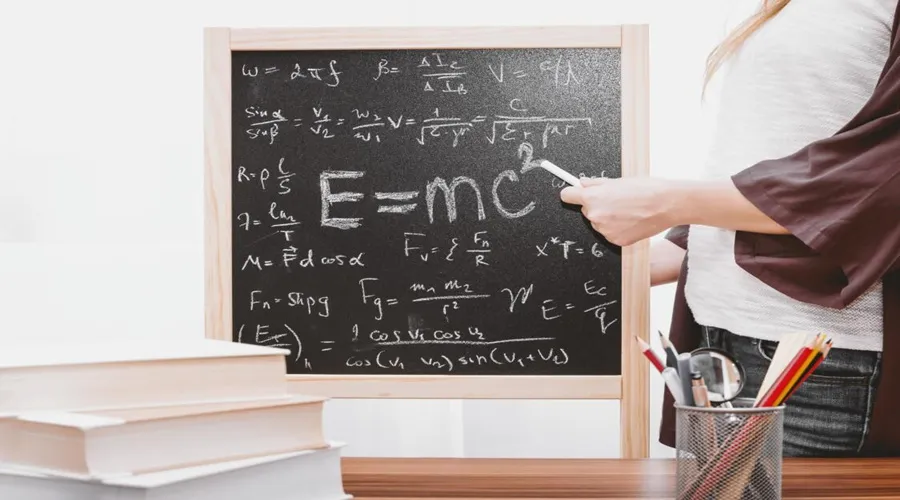 ω = 2πf β = ΔI_c / ΔI_B V = c/λ
sinα / sinβ = v₁ / v₂ = w₂ / w₁ V = 1 / √ε·μr = c / √εr μr
R = ρ l/S
E = mc²
λ = ln₂ / T
F_v = { F_n / R x*T = 6
M = F⃗ d cosα
F_n = Shpg F_g = m₁ m₂ / r² E = E_c / q
(E )_h = 1 cos v₁ cos v₂ / cos(v₁ v₂) sin(v₁+v₂)